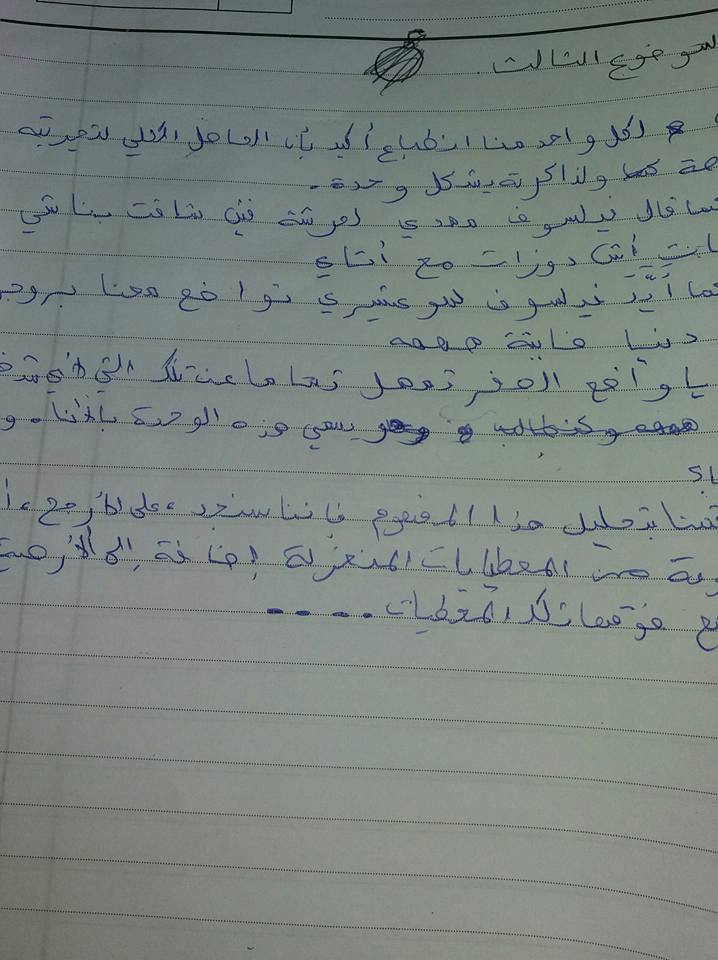 الموضوع الثالث.
لكل واحد منا انطباع أكيد بأن الحاصل الكلي لتجربته
ولذاكرته يشكل وحدة.
كما قال فيلسوف مهدي لعرشة فين شاقت بناشي
أش دوزات مع أتاي
كما أيد فيلسوف سوعشيري تواضع معنا بروح
دنيا فانية ههههه
يا واضع الصفر تمهل تماما عن تلك التي
يسمي هذه الوحدة بالأنا. و
قمنا بتحليل هذا المفهوم فإننا سنجد، على الأرجح، أ
من المعطيات المنعزلة إضافة إلى الأرضية
فوقها تلك المعطيات.....